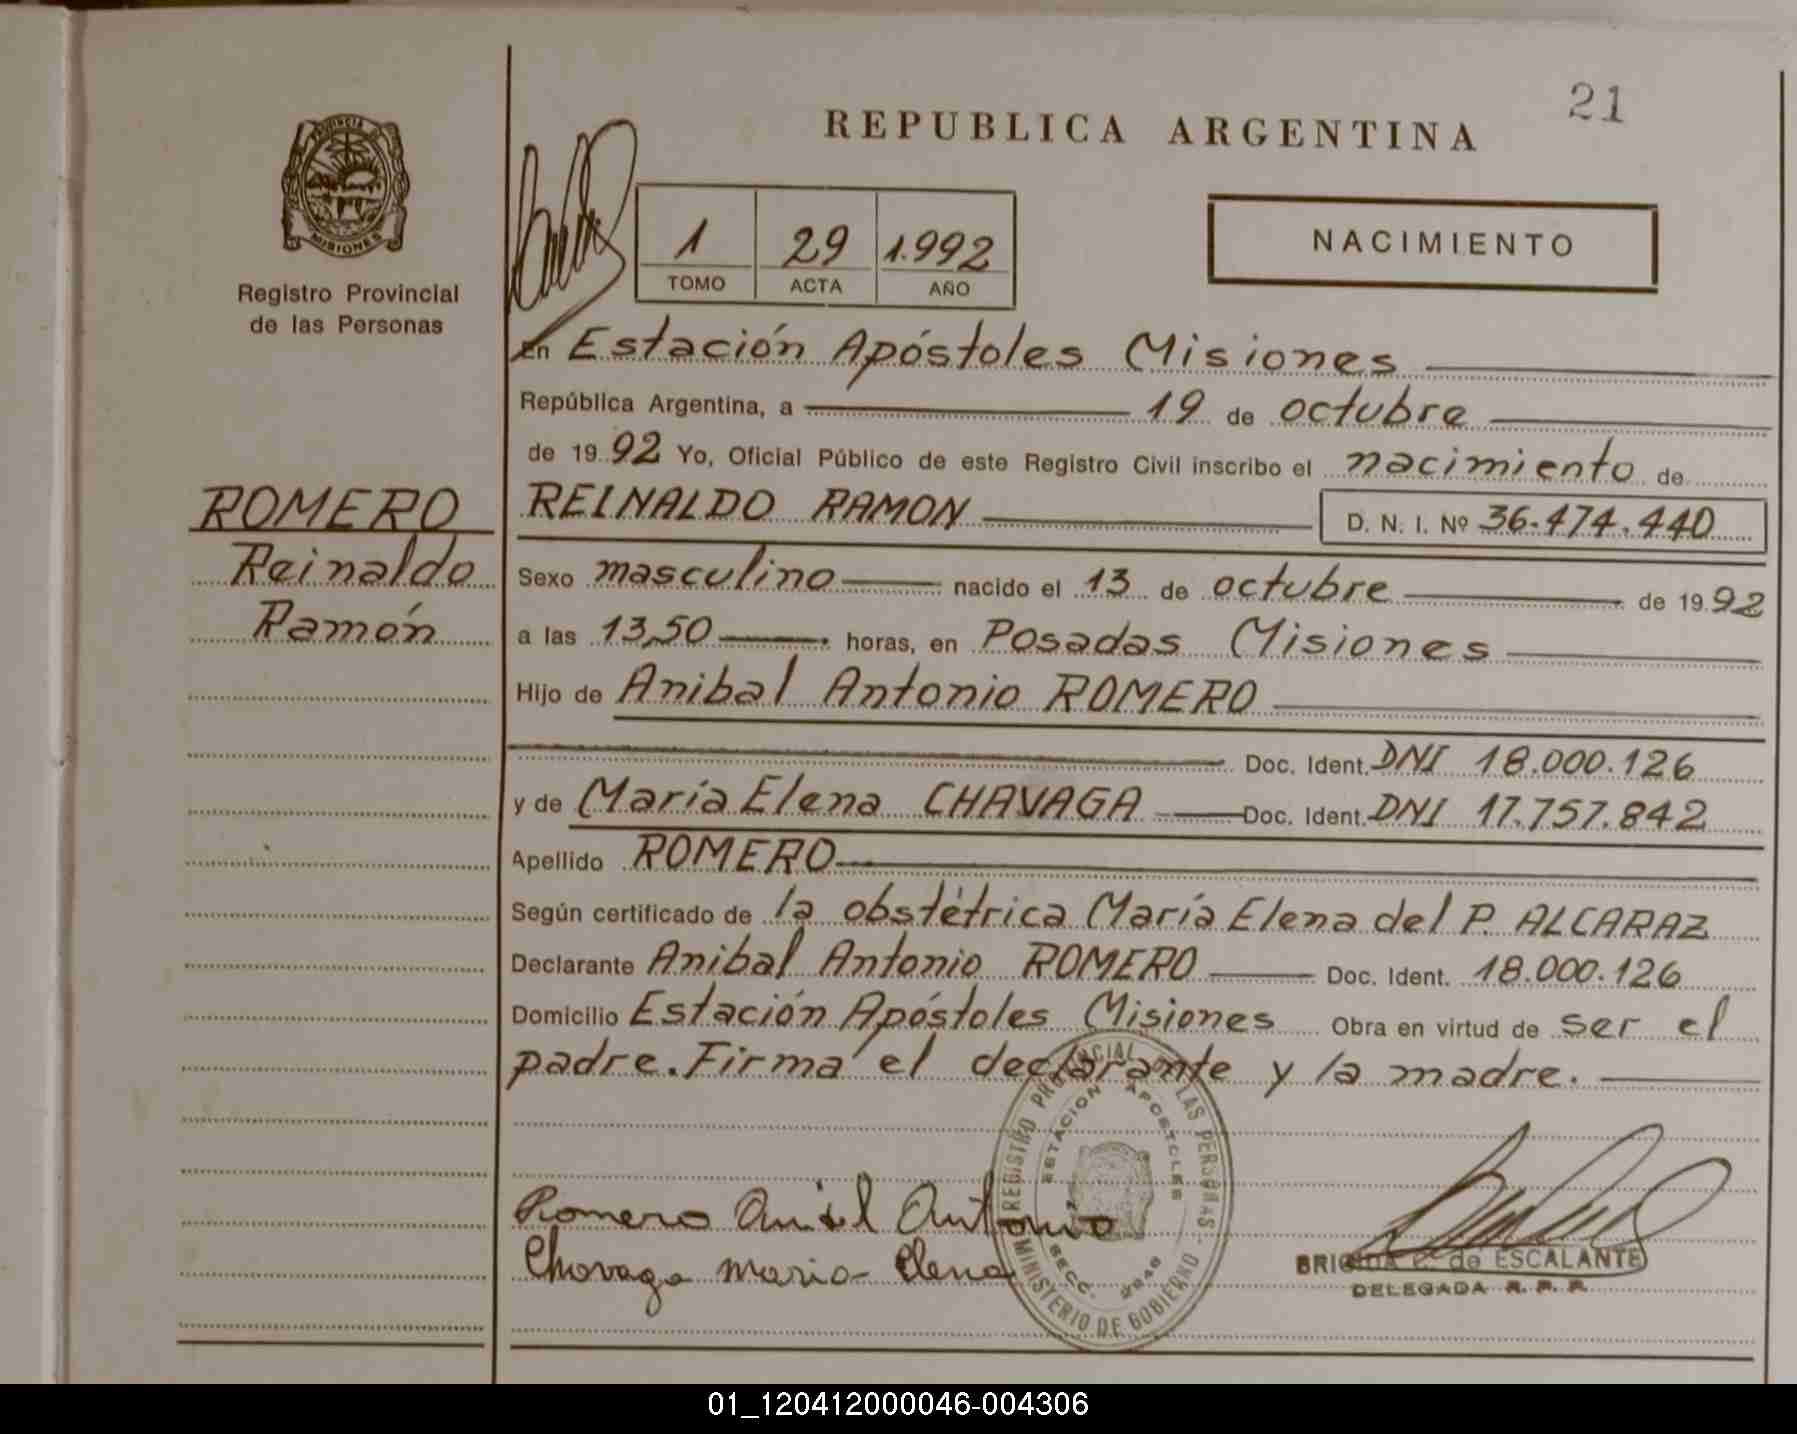 21
REPUBLICA ARGENTINA
PROVINCIA DE
MISIONES
Registro Provincial
de las Personas
1 29 1.992
TOMO ACTA AÑO
NACIMIENTO
En Estación Apóstoles Misiones
República Argentina, a 19 de octubre
de 1992 Yo, Oficial Público de este Registro Civil inscribo el nacimiento de
ROMERO
Reinaldo
Ramón
REINALDO RAMON D. N. I. Nº 36.474.440
Sexo masculino nacido el 13 de octubre de 1992
a las 13,50 horas, en Posadas Misiones
Hijo de Anibal Antonio ROMERO
Doc. Ident. DNI 18.000.126
y de María Elena CHAVAGA Doc. Ident. DNI 17.757.842
Apellido ROMERO
Según certificado de la obstétrica María Elena del P. ALCARAZ
Declarante Anibal Antonio ROMERO Doc. Ident. 18.000.126
Domicilio Estación Apóstoles Misiones Obra en virtud de ser el
padre. Firma el declarante y la madre.
REGISTRO PROVINCIAL DE LAS PERSONAS
ESTACION APOSTOLES
SECC.
MINISTERIO DE GOBIERNO
Romero Antonio
Chavaga Maria Elena
de ESCALANTE
DELEGADA R. P. P.
01_120412000046-004306